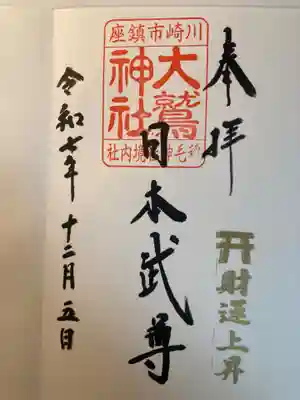 奉拝
財運上昇
川崎市鎮座
大鷲
神社
日本武尊
令和七年十二月五日